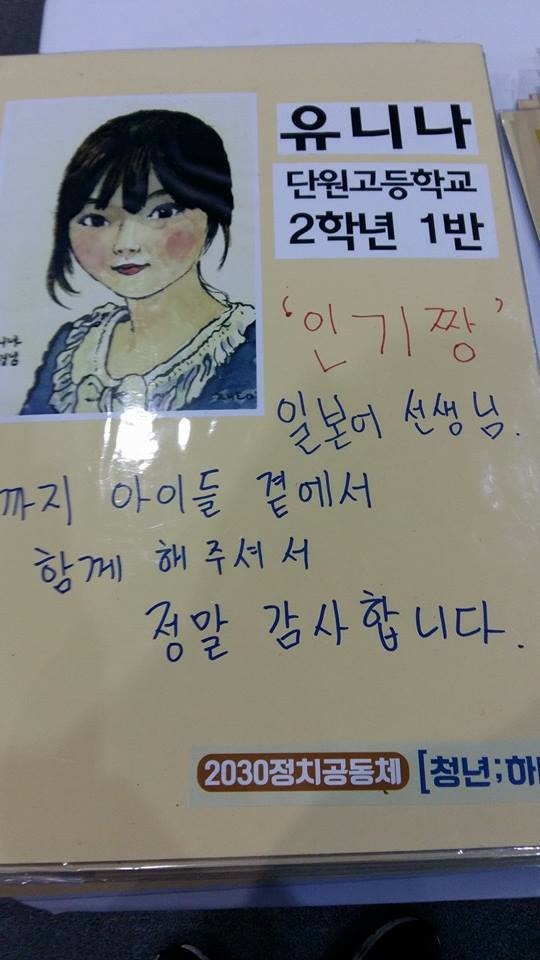 유니나
단원고등학교
2학년 1반
'인기짱'
일본어 선생님.
까지 아이들 곁에서
함께 해주셔서
정말 감사합니다.
2030정치공동체 [청년;하